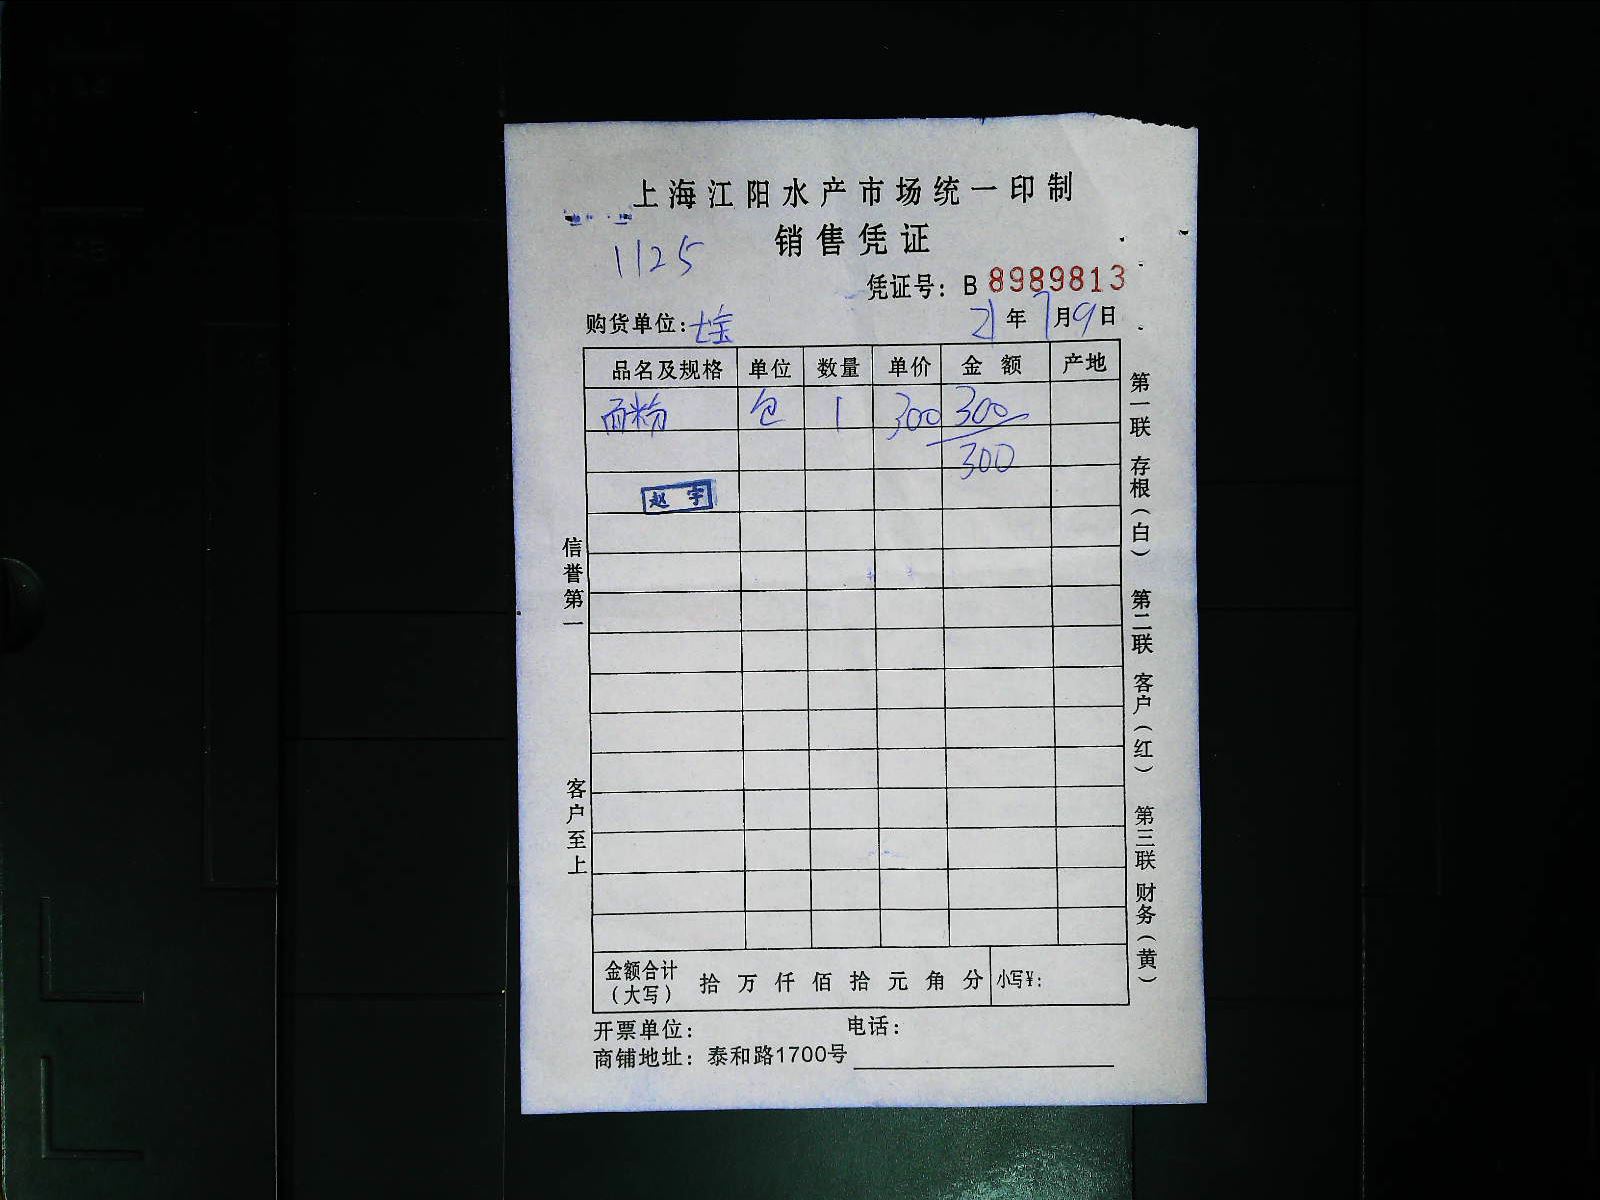 上海江阳水产市场统一印制
销售凭证
1125
凭证号：B 8989813
购货单位：七宝 21年7月9日
品名及规格 单位 数量 单价 金额 产地
面粉 包 1 300 300
300
赵宇
信誉第一
客户至上
第一联 存根（白） 第二联 客户（红） 第三联 财务（黄）
金额合计（大写） 拾 万 仟 佰 拾 元 角 分 小写¥：
开票单位： 电话：
商铺地址：泰和路1700号